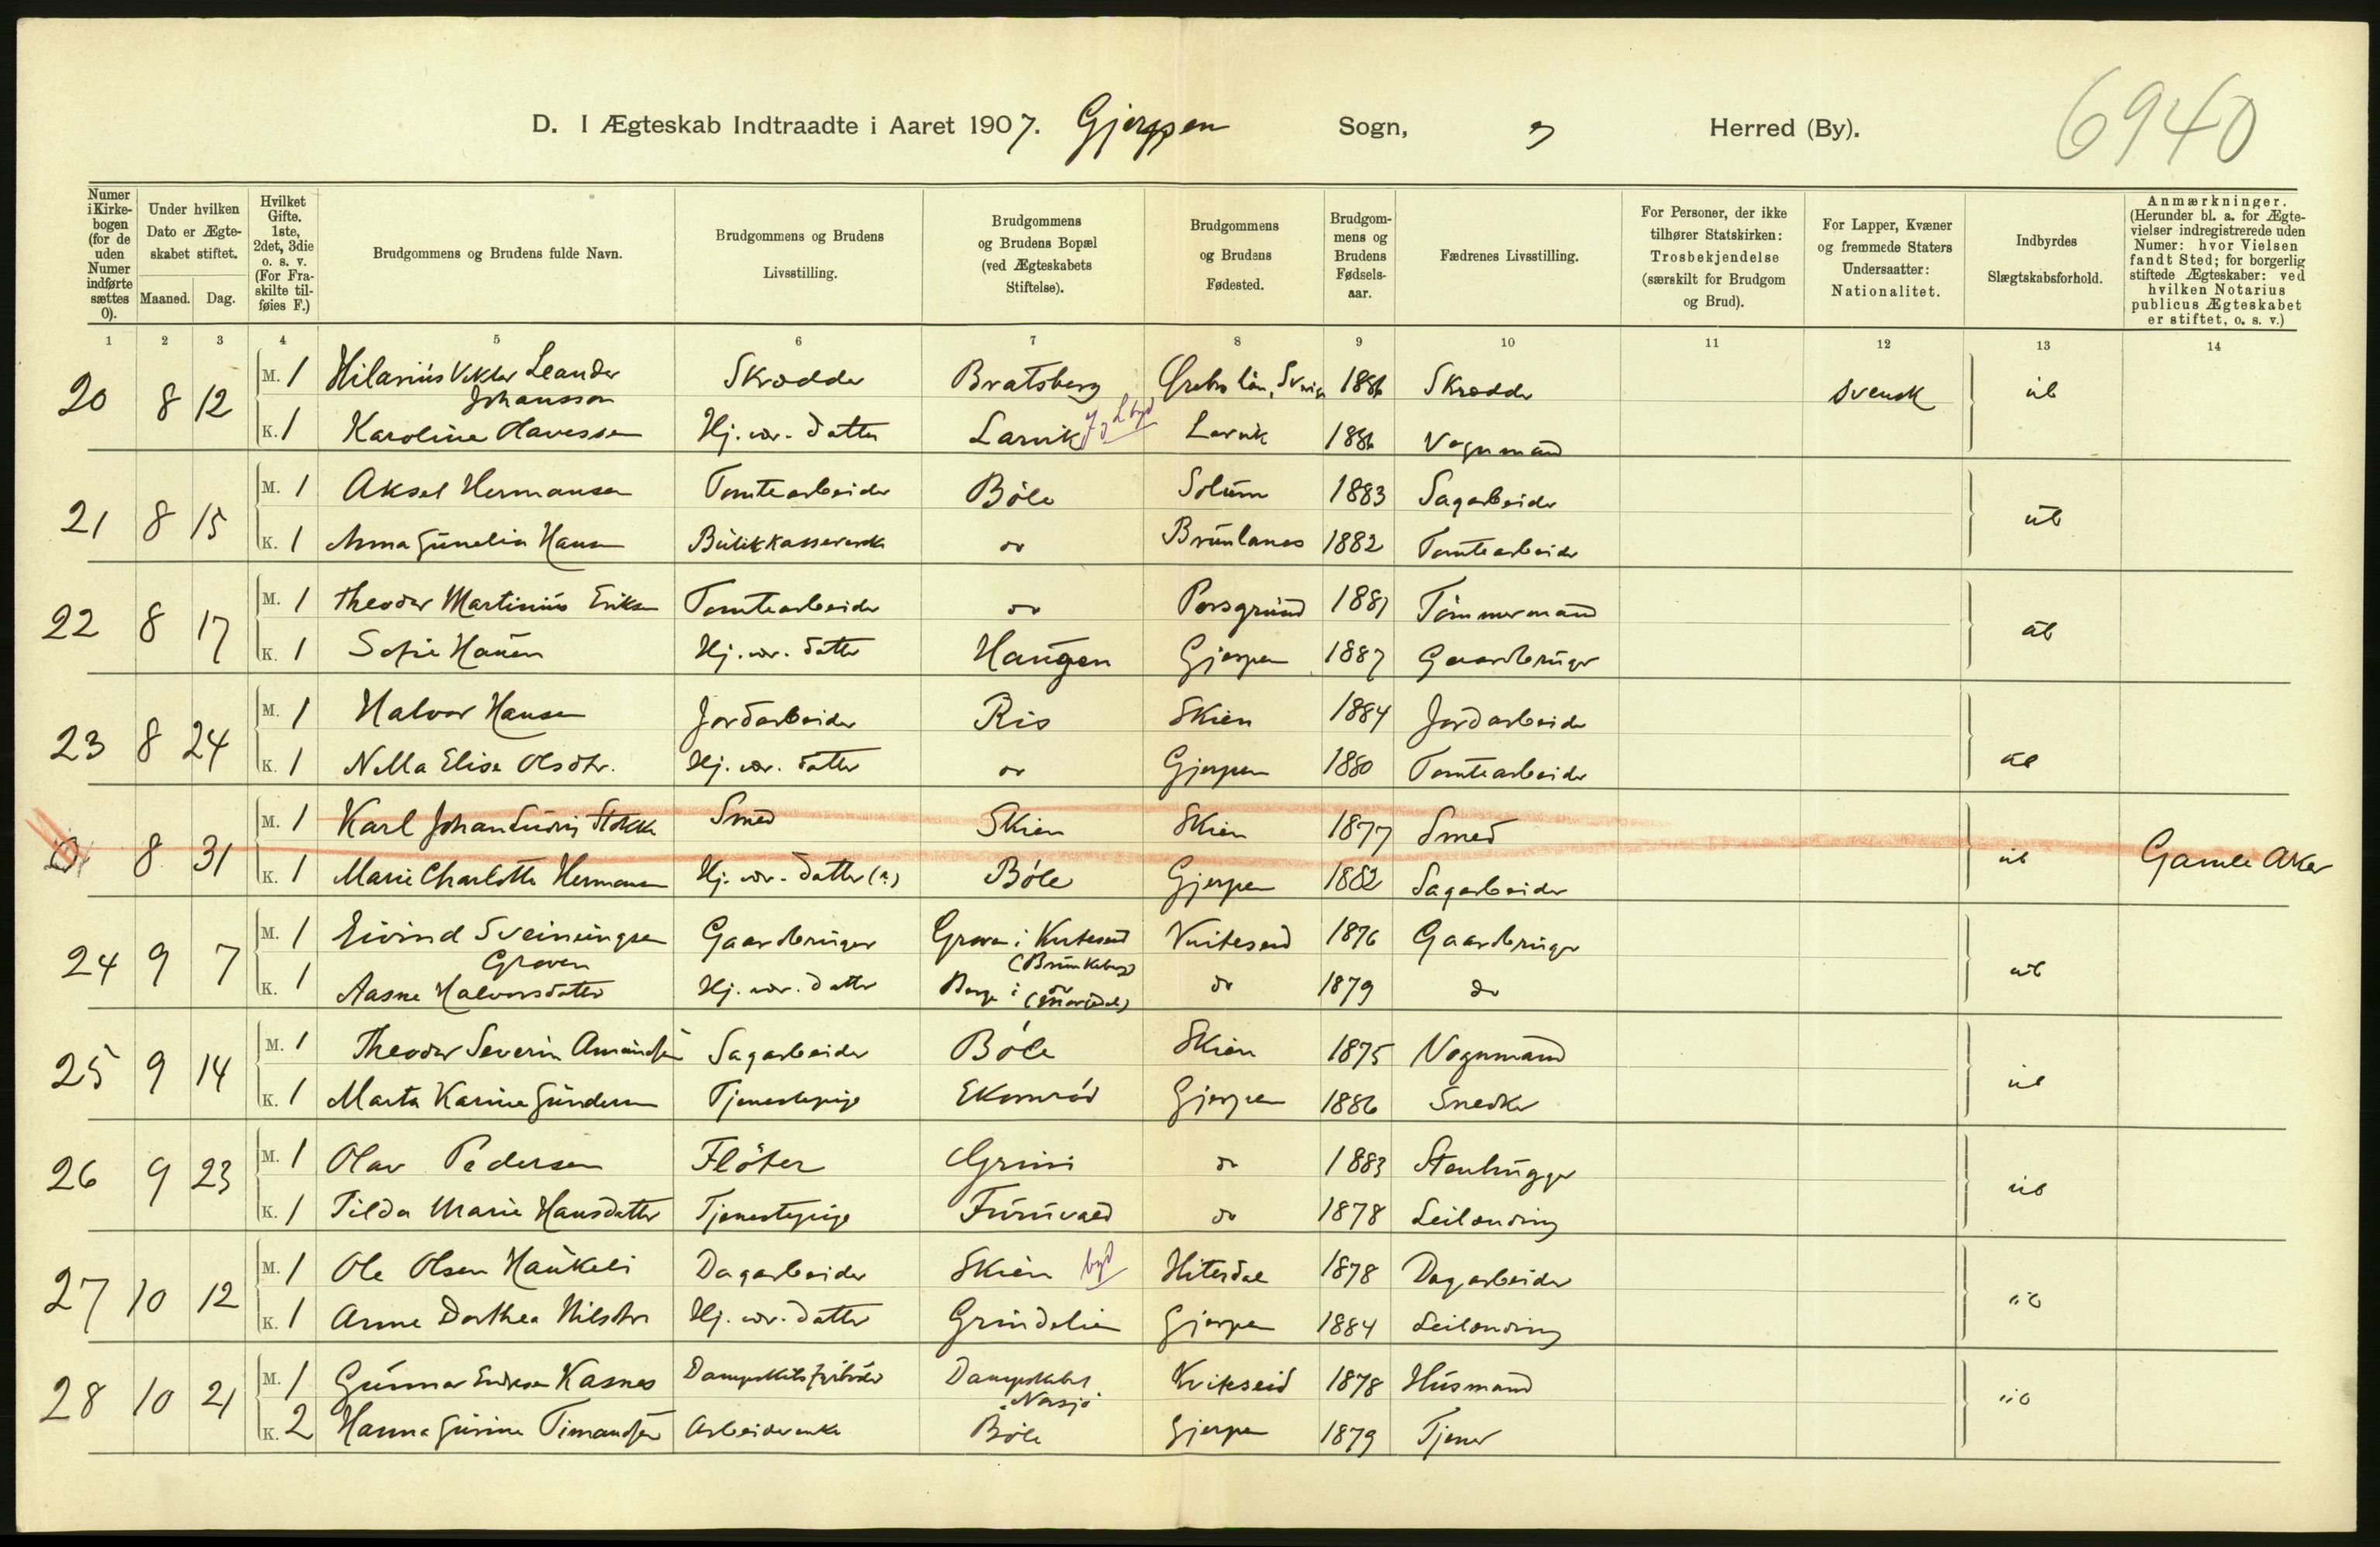 6940
D. I Ægteskab Indtraadte i Aaret 1907. Gjerpen Sogn, Herred (By).
Numer i Kirkebogen (for de uden Numer indførte sættes 0). Under hvilken Dato er Ægteskabet stiftet. Maaned. Dag. Hvilket Gifte. 1ste, 2det, 3die o. s. v. (For Fraskilte tilføies F.) Brudgommens og Brudens fulde Navn. Brudgommens og Brudens Livsstilling. Brudgommens og Brudens Bopæl (ved Ægteskabets Stiftelse). Brudgommens og Brudens Fødested. Brudgommens og Brudens Fødselsaar. Fædrenes Livsstilling. For Personer, der ikke tilhører Statskirken: Trosbekjendelse (særskilt for Brudgom og Brud). For Lapper, Kvæner og fremmede Staters Undersaatter: Nationalitet. Indbyrdes Slægtskabsforhold. Anmærkninger. (Herunder bl. a. for Ægtevielser indregistrerede uden Numer: hvor Vielsen fandt Sted; for borgerlig stiftede Ægteskaber: ved hvilken Notarius publicus Ægteskabet er stiftet, o. s. v.)
1 2 3 4 5 6 7 8 9 10 11 12 13 14
20 8 12 M. 1 Hilarius Viktor Leander Johansson Skrædder Bratsberg Ørebro län, 1886 Skrædder svensk ub
K. 1 Karoline Olavessen Hj. vær. datter Larvik Larvik 1886 Vognmand
21 8 15 M. 1 Aksel Hermansen Tomtearbeider Böle Solum 1883 Sagarbeider ub
K. 1 Anna Gunelia Hansen Brunlanes 1882 Tomtearbeider
22 8 17 M. 1 Theodor Martinius Eriksen Tomtearbeider do Porsgrund 1881 Tömmermand ub
K. 1 Sofie Hansen Hj. vær. datter Haugen Gjerpen 1887 Gaardbruger
23 8 24 M. 1 Halvor Hansen Jordarbeider Ris Skien 1884 Jordarbeider ub
K. 1 Nella Elise Olsdtr. Hj. vær. datter do Gjerpen 1880 Tomtearbeider
8 31 M. 1 Karl Johan Ludvig Smed Skien Skien 1877 Smed ub Gamle Aker
K. 1 Marie Charlotte Hermansen Hj. vær. datter (?) Böle Gjerpen 1882 Sagarbeider
24 9 7 M. 1 Eivind Sveinungsen Groven Gaardbruger Groven i Kviteseid (Brunkeberg) Kviteseid 1876 Gaardbruger ub
K. 1 Aasne Halvorsdatter Hj. vær. datter Berge i do do 1879 do
25 9 14 M. 1 Theodor Severin Amundsen Sagarbeider Böle Skien 1875 Vognmand ub
K. 1 Marta Karine Gundersen Tjenestepige Ekornröd Gjerpen 1886 Snedker
26 9 23 M. 1 Olav Pedersen Flöter Grini do 1883 Stenhugger ub
K. 1 Tilda Marie Hansdatter Tjenestepige Furuvald do 1878 Leilænding
27 10 12 M. 1 Ole Olsen Haukeli Dagarbeider Skien byd Hiterdal 1878 Dagarbeider ub
K. 1 Anne Dorthea Nilsdtr Hj. vær. datter Grindalien Gjerpen 1884 Leilænding
28 10 21 M. 1 Gunnar Eriksen Kasnes Dampskibsfyrböder Dampskibet Kviteseid 1878 Husmand ub
K. 2 Hanna Gurine Timandsen Arbeiderenke Böle Gjerpen 1879 Tjener